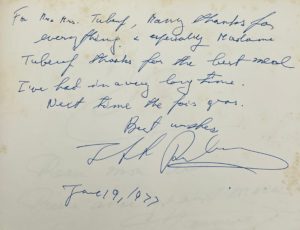 For Mr. Mrs. Tubeuf, Many thanks for
everything & especially Madame
Tubeuf thanks for the best meal
I've had in a very long time.
Next time the fois gras.
Best wishes
19, 1977